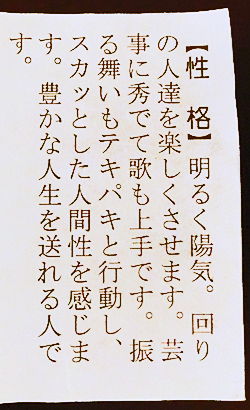 【性格】明るく陽気。回り
の人達を楽しくさせます。芸
事に秀でて歌も上手です。振
る舞いもテキパキと行動し、
スカッとした人間性を感じま
す。豊かな人生を送れる人で
す。